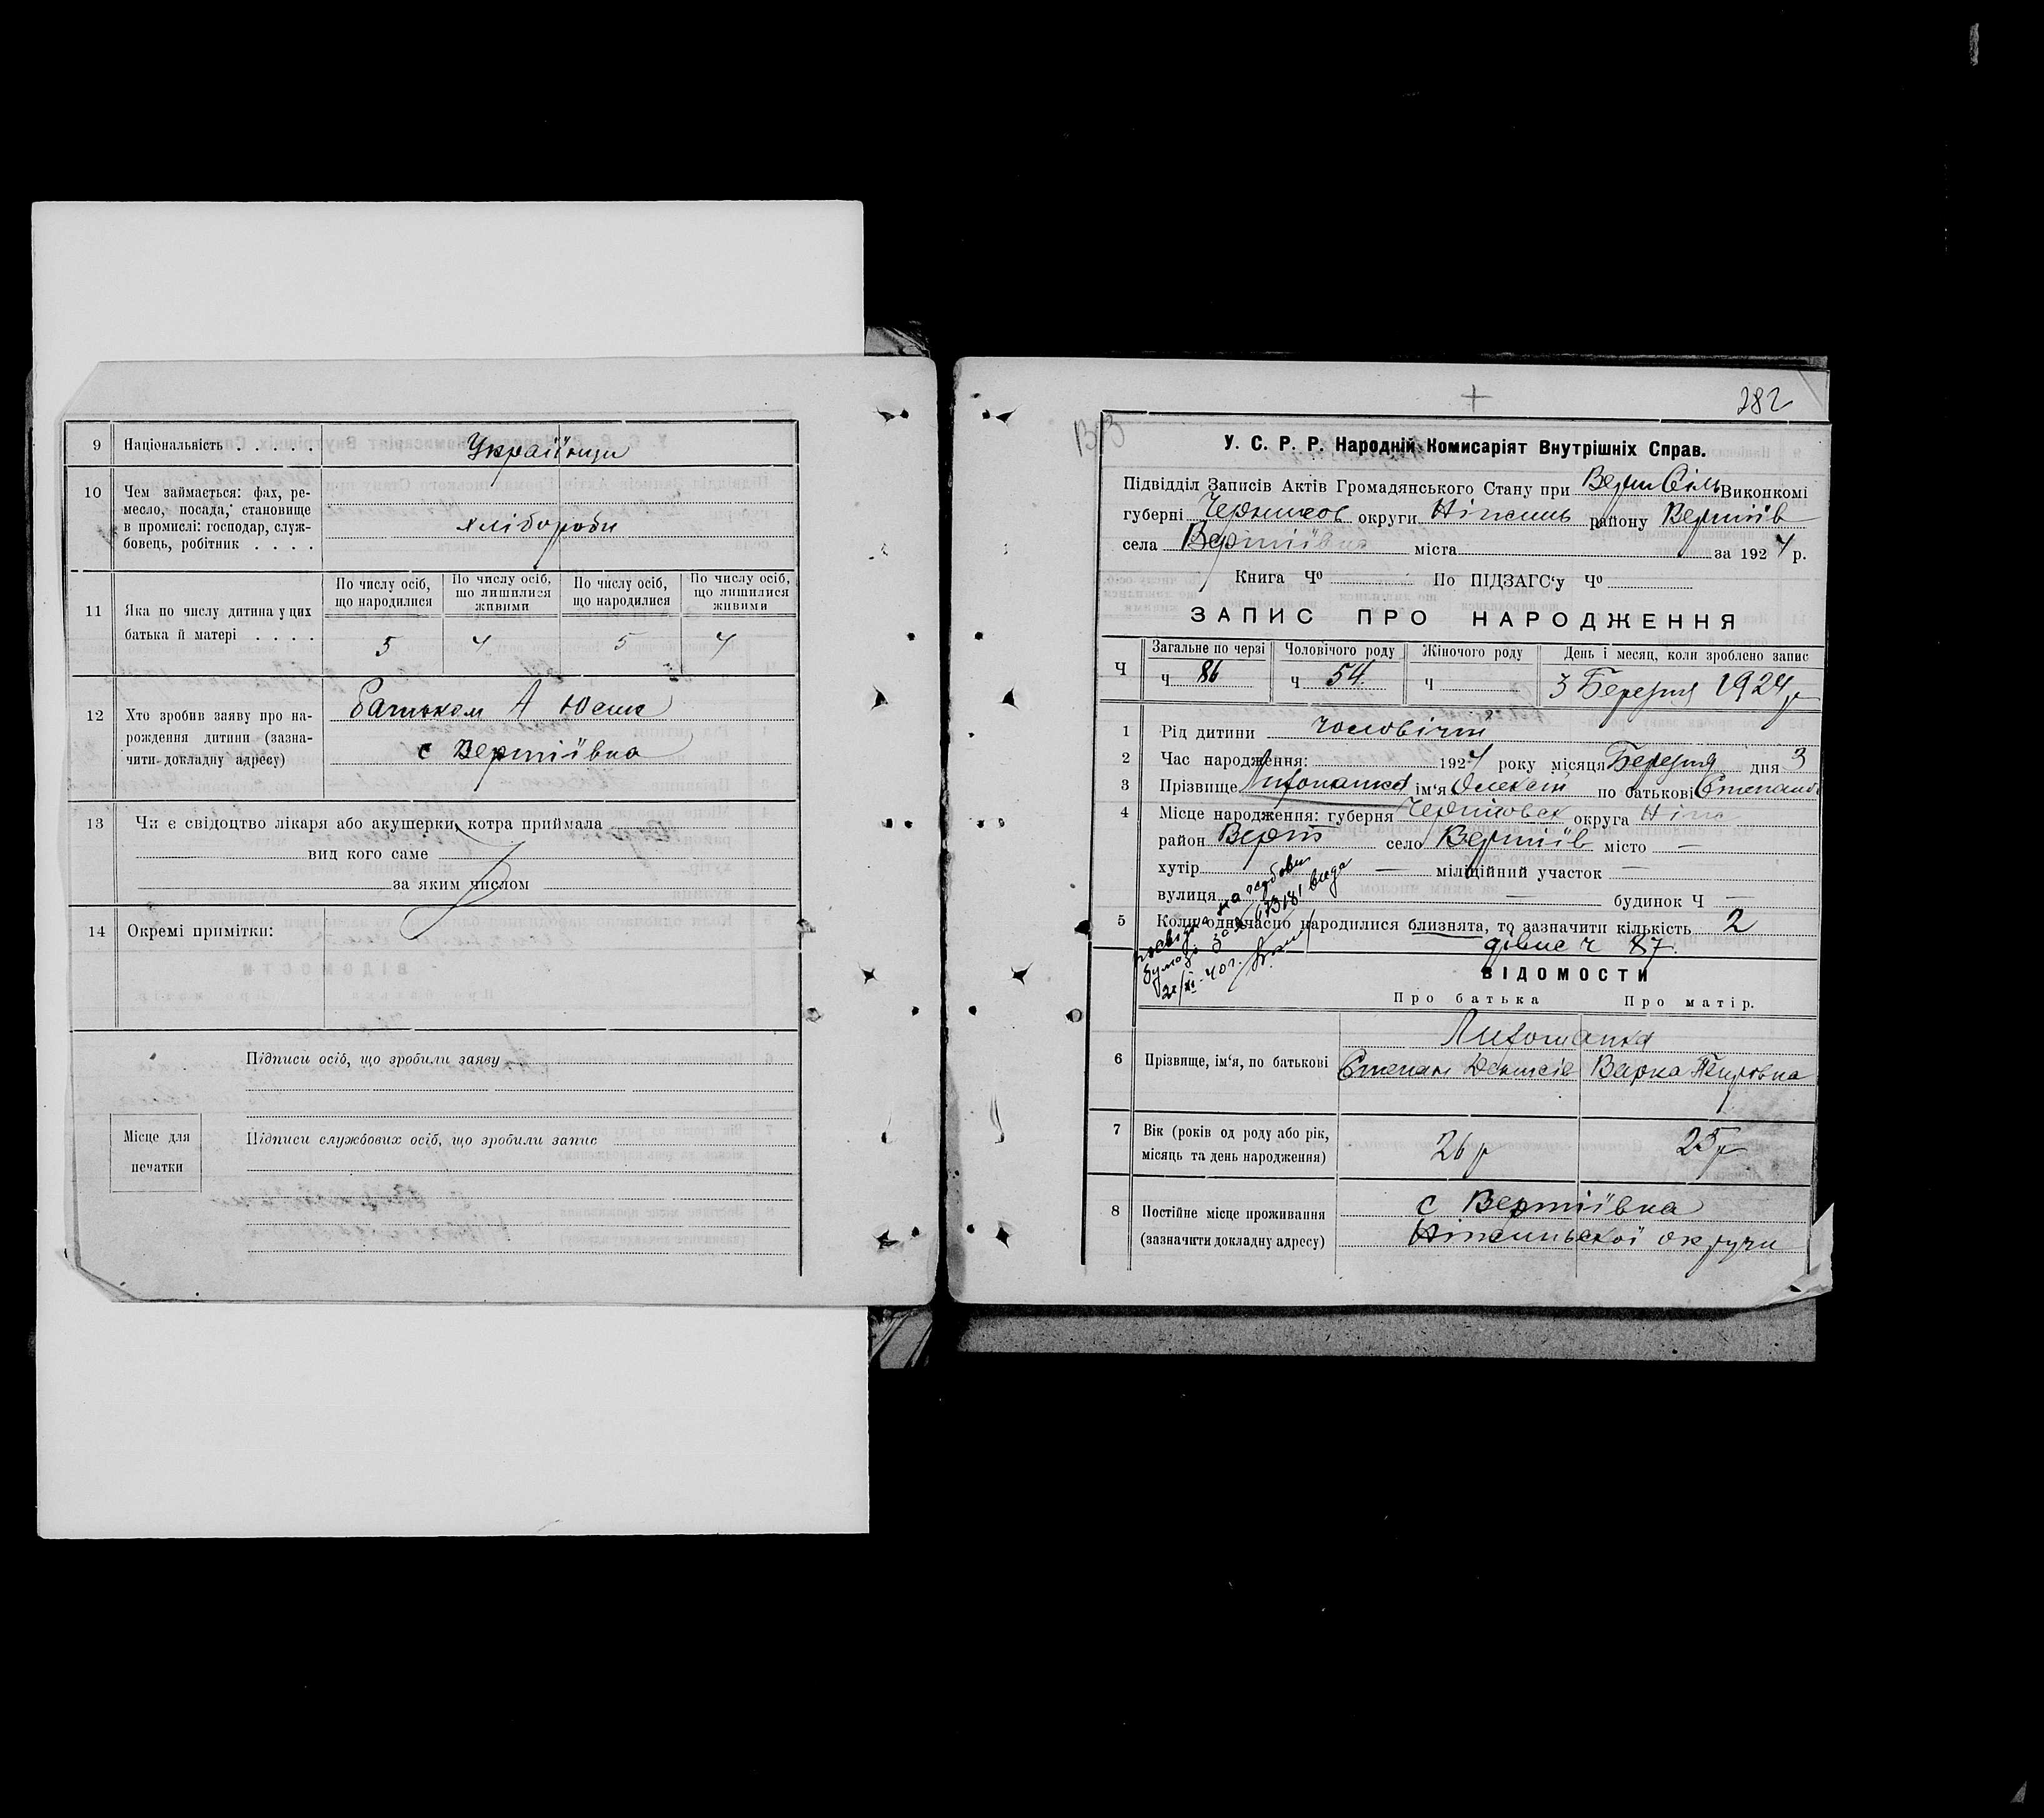 9 Національність . . . . . Українци
10 Чем займається: фах, ре-
месло, посада, становище
в промислі: господар, служ-
бовець, робітник . . . . хлібороби
11 Яка по числу дитина у цих
батька й матері . . . .
По числу осіб, що народилися 5
По числу осіб, що лишилися живими 4
По числу осіб, що народилися 5
По числу осіб, що лишилися живими 4
12 Хто зробив заяву про на-
рождення дитини (зазна-
чити докладну адресу)
Батьком А
с Вертіївка
13 Чи є свідоцтво лікаря або акушерки, котра приймала
вид кого саме
за яким числом
14 Окремі примітки:
Підписи осіб, що зробили заяву
Підписи службових осіб, що зробили запис
Місце для
печатки
282
У. С. Р. Р. Народній Комисаріят Внутрішніх Справ.
Підвідділ Записів Актів Громадянського Стану при Верт Сіль Виконкомі
губерні округи Ніжинь району Вертіїв
села Вертіївка міста за 1924 р.
Книга Чо По ПІДЗАГС'у Чо
ЗАПИС ПРО НАРОДЖЕННЯ
Ч
Загальне по черзі Чоловічого роду Жіночого роду День і месяц, коли зроблено запис
ч 86 ч 54. ч 3 Березня 1924 р
1 Рід дитини чоловічий
2 Час народження: 1924 року місяця Березня дня 3
3 Прізвище ім'я Олексій по батькові Степанов
4 Місце народження: губерня округа Ніж
район Верт село Вертіїв місто —
хутір — міліційний участок —
вулиця — будинок Ч —
5 Коли одночасно народилися близнята, то зазначити кількість 2
дівис ч 87.
ВІДОМОСТИ
Про батька Про матір.
6 Прізвище, ім'я, по батькові
Степан Денисів Варка Петровна
7 Вік (років од роду або рік,
місяць та день народження) 26 р 25 р
8 Постійне місце проживання
(зазначити докладну адресу)
с Вертіївка
Ніжинської округи